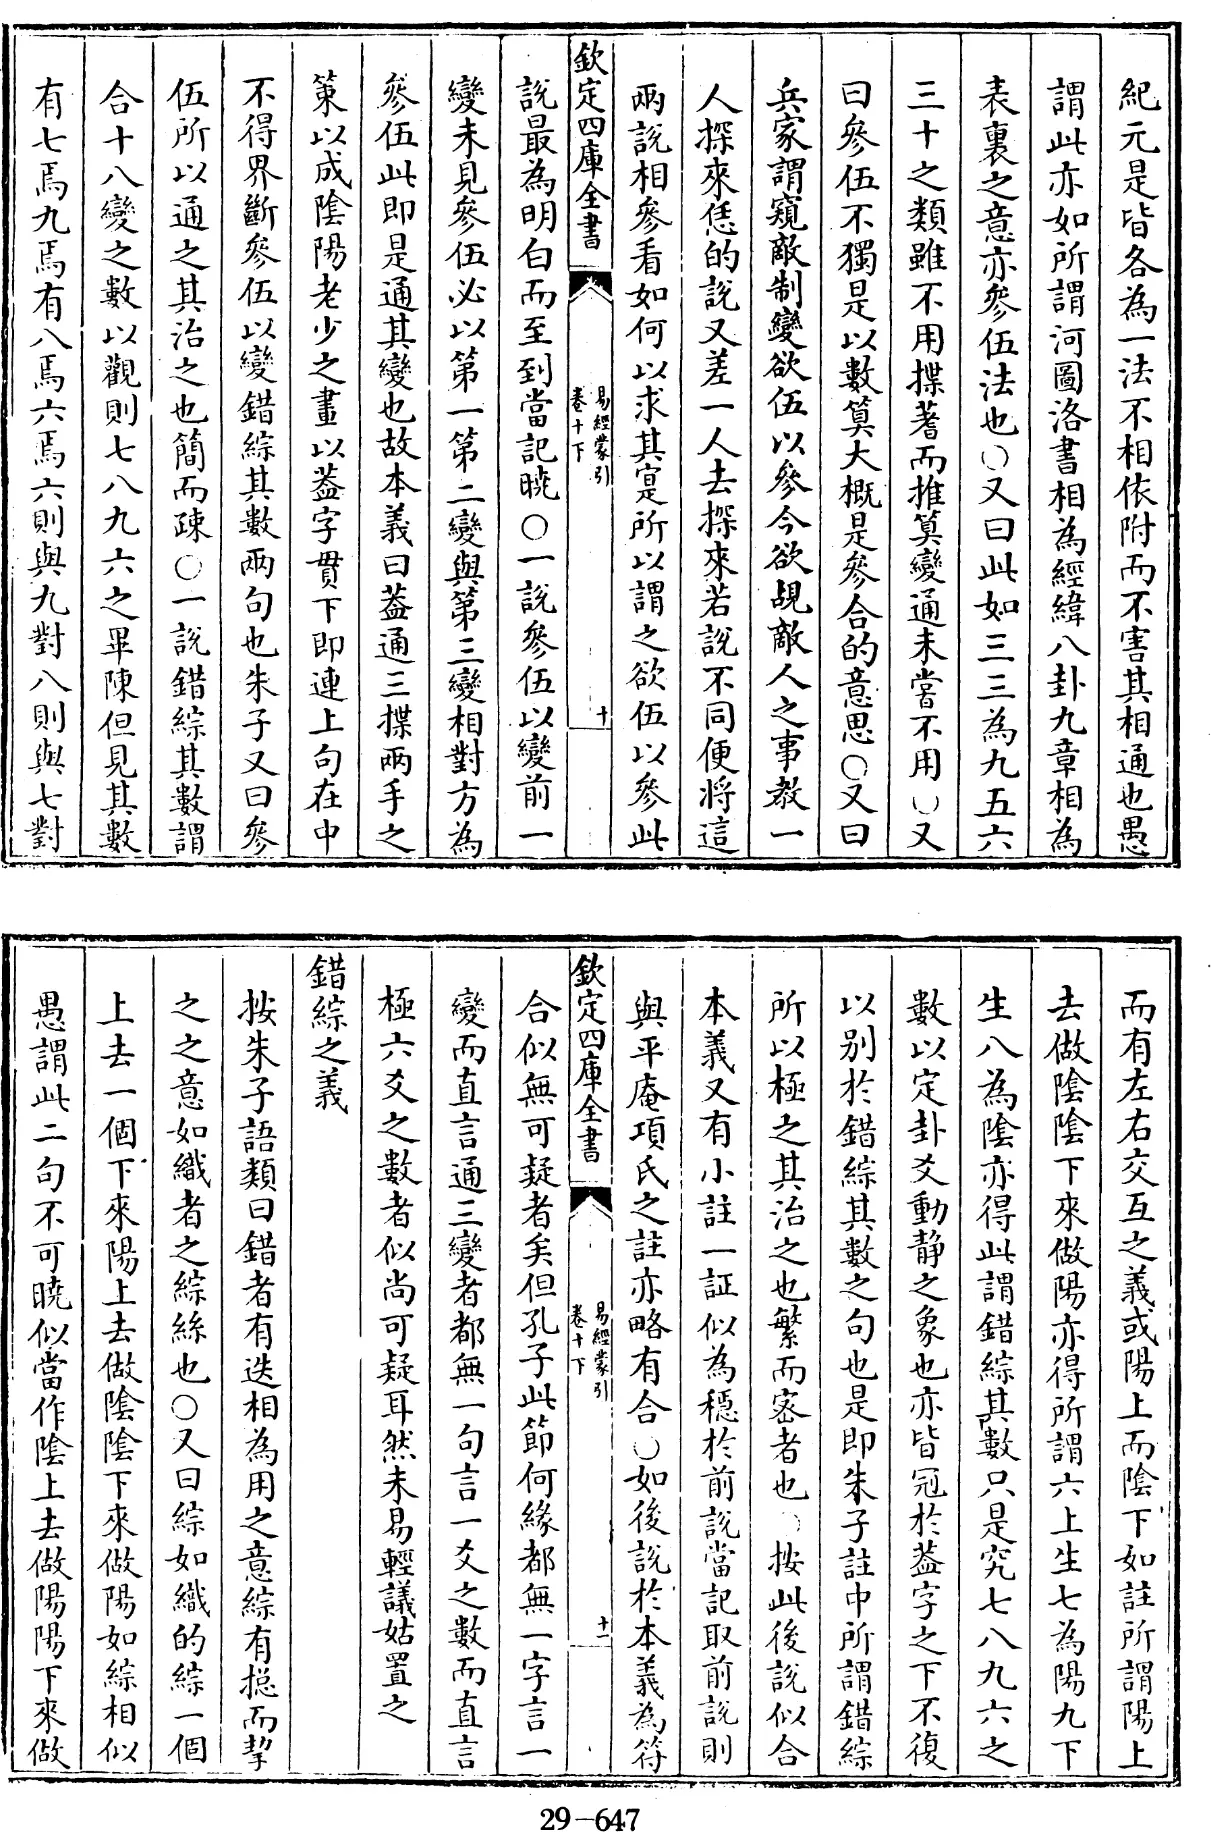 紀元是皆各為一法不相依附而不害其相通也愚
謂此亦如所謂河圖洛書相為經緯八卦九章相為
表裏之意亦參伍法也○又曰此如三三為九五六
三十之類雖不用揲蓍而推算變通未嘗不用○又
曰參伍不獨是以數算大概是參合的意思○又曰
兵家謂窺敵制變欲伍以參今欲覘敵人之事教一
人探來恁的說又差一人去探來若說不同便將這
兩說相參看如何以求其寔所以謂之欲伍以參此
欽定四庫全書
易經蒙引
卷十下
十
說最為明白而至到當記曉○一說參伍以變前一
變未見參伍必以第一第二變與第三變相對方為
參伍此即是通其變也故本義曰葢通三揲兩手之
策以成陰陽老少之畫以葢字貫下即連上句在中
不得界斷參伍以變錯綜其數兩句也朱子又曰參
伍所以通之其治之也簡而疎○一說錯綜其數謂
合十八變之數以觀則七八九六之畢陳但見其數
有七焉九焉有八焉六焉六則與九對八則與七對
而有左右交互之義或陽上而陰下如註所謂陽上
去做陰陰下來做陽亦得所謂六上生七為陽九下
生八為陰亦得此謂錯綜其數只是究七八九六之
數以定卦爻動靜之象也亦皆冠於葢字之下不復
以別於錯綜其數之句也是即朱子註中所謂錯綜
所以極之其治之也繁而密者也○按此後說似合
本義又有小註一証似為穩於前說當記取前說則
與平庵項氏之註亦略有合○如後說於本義為符
欽定四庫全書
易經蒙引
卷十下
十一
合似無可疑者矣但孔子此節何緣都無一字言一
變而直言通三變者都無一句言一爻之數而直言
極六爻之數者似尚可疑耳然未易輕議姑置之
錯綜之義
按朱子語類曰錯者有迭相為用之意綜有揔而挈
之之意如織者之綜絲也○又曰綜如織的綜一個
上去一個下來陽上去做陰陰下來做陽如綜相似
愚謂此二句不可曉似當作陰上去做陽陽下來做
29-647